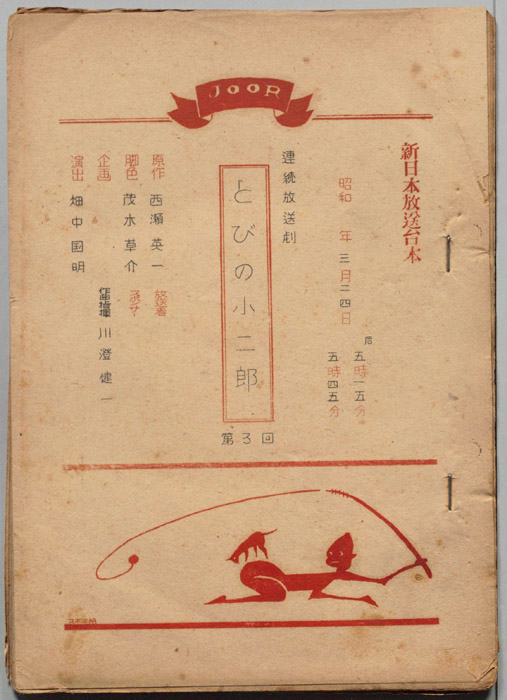 JOOR
新日本放送台本
昭和 年 三月二四日
后 五時一五分
五時四五分
連続放送劇
とびの小二郎
第3回
原作 西瀬英一
脚色 茂木草介
企画
演出 畑中国明
放送者
作曲指揮 川澄健一